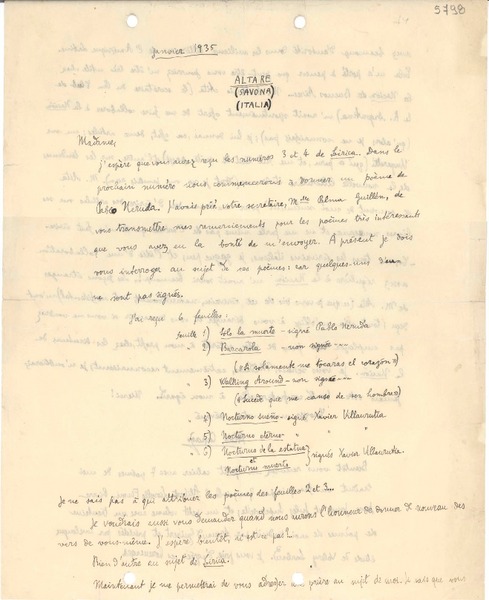 5798
Janvier 1935
ALTARE
(SAVONA)
(ITALIA)
Madame,
J'espère que vous avez reçu les numéros 3 et 4 de Lirica. Dans le
prochain numéro nous commencerons à donner un poème de
Pablo Neruda. J'avais prié votre secrétaire, Mlle Guillén, de
vous transmettre mes remerciements pour les poèmes très intéressants
que vous avez eu la bonté de m'envoyer. A présent je dois
vous interroger au sujet de ses poèmes: car quelques-uns
ne sont pas signés.
J'ai reçu 6 feuilles:
feuille 1) Solo la muerte - signé Pablo Neruda
" 2) Barcarola - non signée --
("Si solamente me tocaras el corazón")
" 3) Walking Around - non signée ---
("Sucede que me canso de ser hombre")
" 4) Nocturno sueño - signé Xavier Villaurrutia
" 5) Nocturno eterno "
" 6) Nocturno de la estatua
et
Nocturno muerto
signés Xavier Villaurrutia.
Je ne sais pas à qui attribuer les poèmes des feuilles 2 et 3...
Je voudrais aussi vous demander quand nous aurons l'honneur de donner de nouveau des
vers de vous-même. J'espère bientôt, n'est-ce pas?...
Rien d'autre au sujet de Lirica.
Maintenant je me permettrai de vous adresser une prière au sujet de moi. Je sais que vous